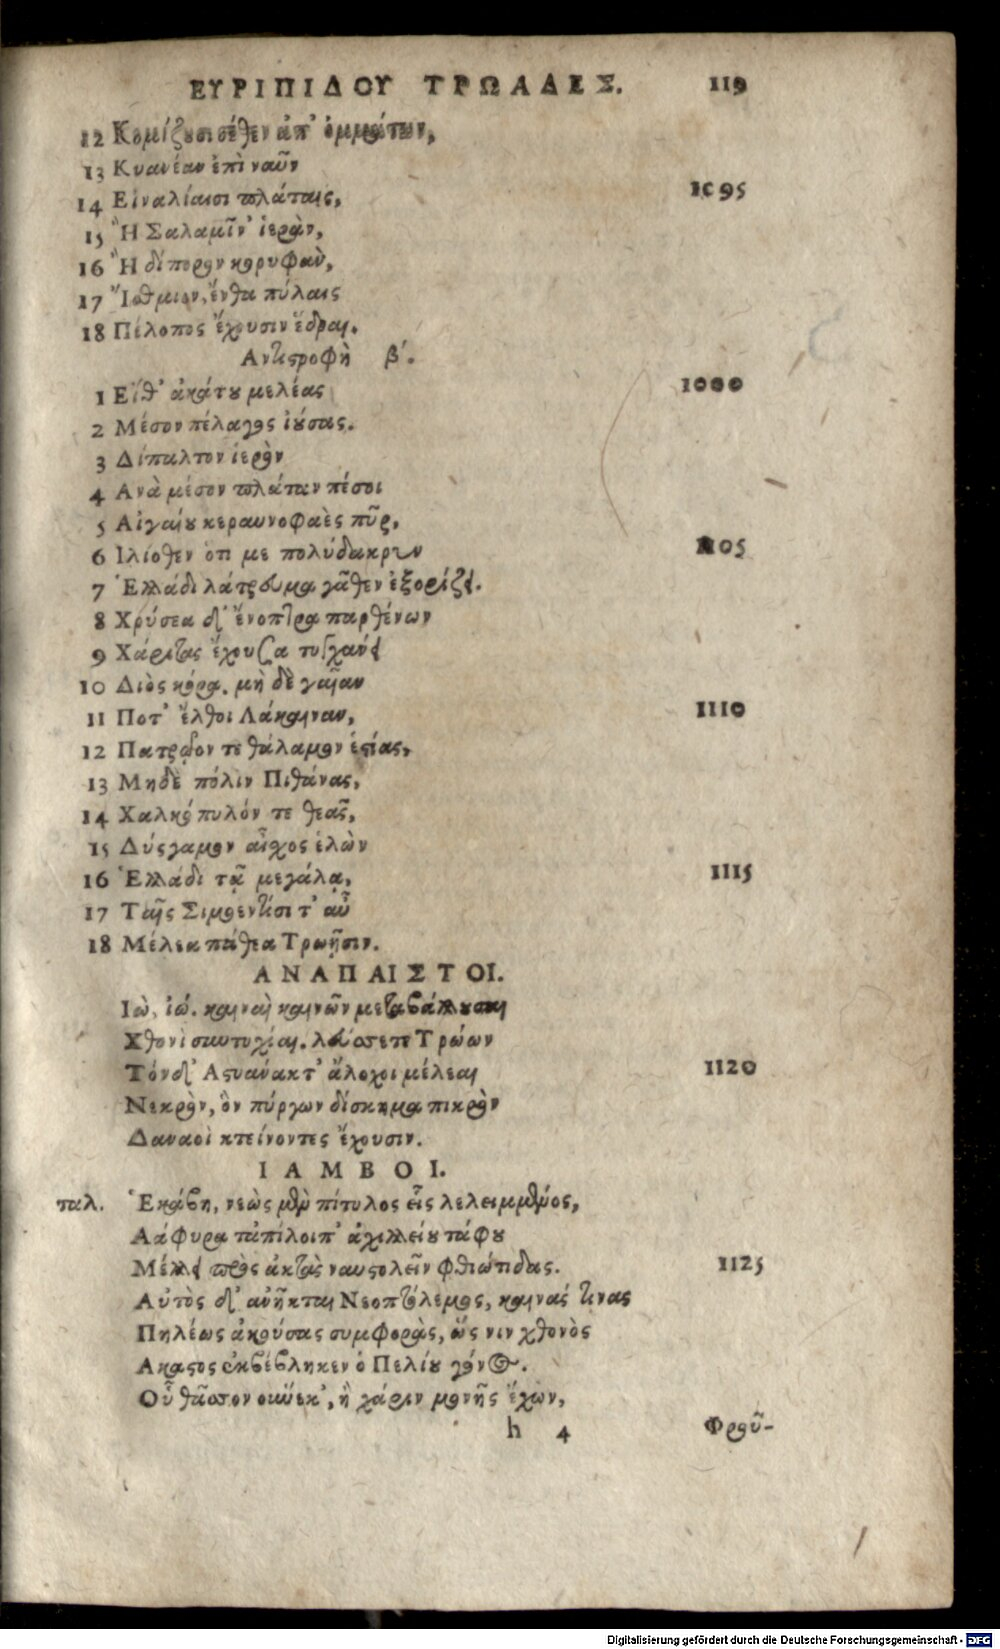 ΕΥΡΙΠΙΔΟΥ ΤΡΩΑΔΕΣ. 119
12 Κομίζουσι σέθεν ἀπ' ὀμμάτων,
13 Κυανέαν ἐπὶ ναῦν
14 Εἰναλίαισι πλάταις, 1095
15 Ἢ Σαλαμῖν' ἱερὰν,
16 Ἢ δίπορον κορυφὰν,
17 Ἴσθμιον, ἔνθα πύλαις
18 Πέλοπος ἔχουσιν ἕδραι.
Αντιστροφὴ β'.
1 Εἴθ' ἀκάτου μελέας 1000
2 Μέσον πέλαγος ἰούσας.
3 Δίπαλτον ἱερὸν
4 Ανὰ μέσον πλάταν πέσοι
5 Αἰγαίου κεραυνοφαὲς πῦρ,
6 Ιλίοθεν ὅτι με πολύδακρυν 1105
7 Ἑλλάδι λάτρευμα γᾶθεν ἐξορίζει.
8 Χρύσεα δ' ἔνοπτρα παρθένων
9 Χάριτας ἔχουσα τυγχάνει
10 Διὸς κόρα. μὴ δὲ γαῖαν
11 Ποτ' ἔλθοι Λάκαιναν, 1110
12 Πατρῷον τε θάλαμον ἑστίας,
13 Μηδὲ πόλιν Πιθάνας,
14 Χαλκόπυλόν τε θεᾶς,
15 Δύσγαμον αἶχος ἑλὼν
16 Ἑλλάδι τᾷ μεγάλᾳ, 1115
17 Ταῖς Σιμοεντίσι τ' αὖ
18 Μέλεα πάθεα Τρωῇσιν.
ΑΝΑΠΑΙΣΤΟΙ.
Ιὼ, ἰώ. καιναὶ καινῶν μεταβάλλουσαι
Χθονὶ συντυχίαι. λεύσσετε Τρώων
Τόνδ' Αστυάνακτ' ἄλοχοι μέλεαι 1120
Νεκρὸν, ὃν πύργων δίσκημα πικρὸν
Δαναοὶ κτείνοντες ἔχουσιν.
ΙΑΜΒΟΙ.
ταλ. Ἑκάβη, νεὼς μὲν πίτυλος εἷς λελειμμένος,
Λάφυρα τἀπίλοιπ' ἀχιλλείου τάφου
Μέλλει πρὸς ἀκτὰς ναυστολεῖν φθιώτιδας. 1125
Αὐτὸς δ' ἀνῆκται Νεοπτόλεμος, καινάς τινας
Πηλέως ἀκούσας συμφορὰς, ὥς νιν χθονὸς
Ακαστος ἐκβέβληκεν ὁ Πελίου γόνος.
Οὗ θᾶσσον οὕνεκ', ἢ χάριν μονῆς ἔχων,
h 4 Φροῦ-
Digitalisierung gefördert durch die Deutsche Forschungsgemeinschaft - DFG